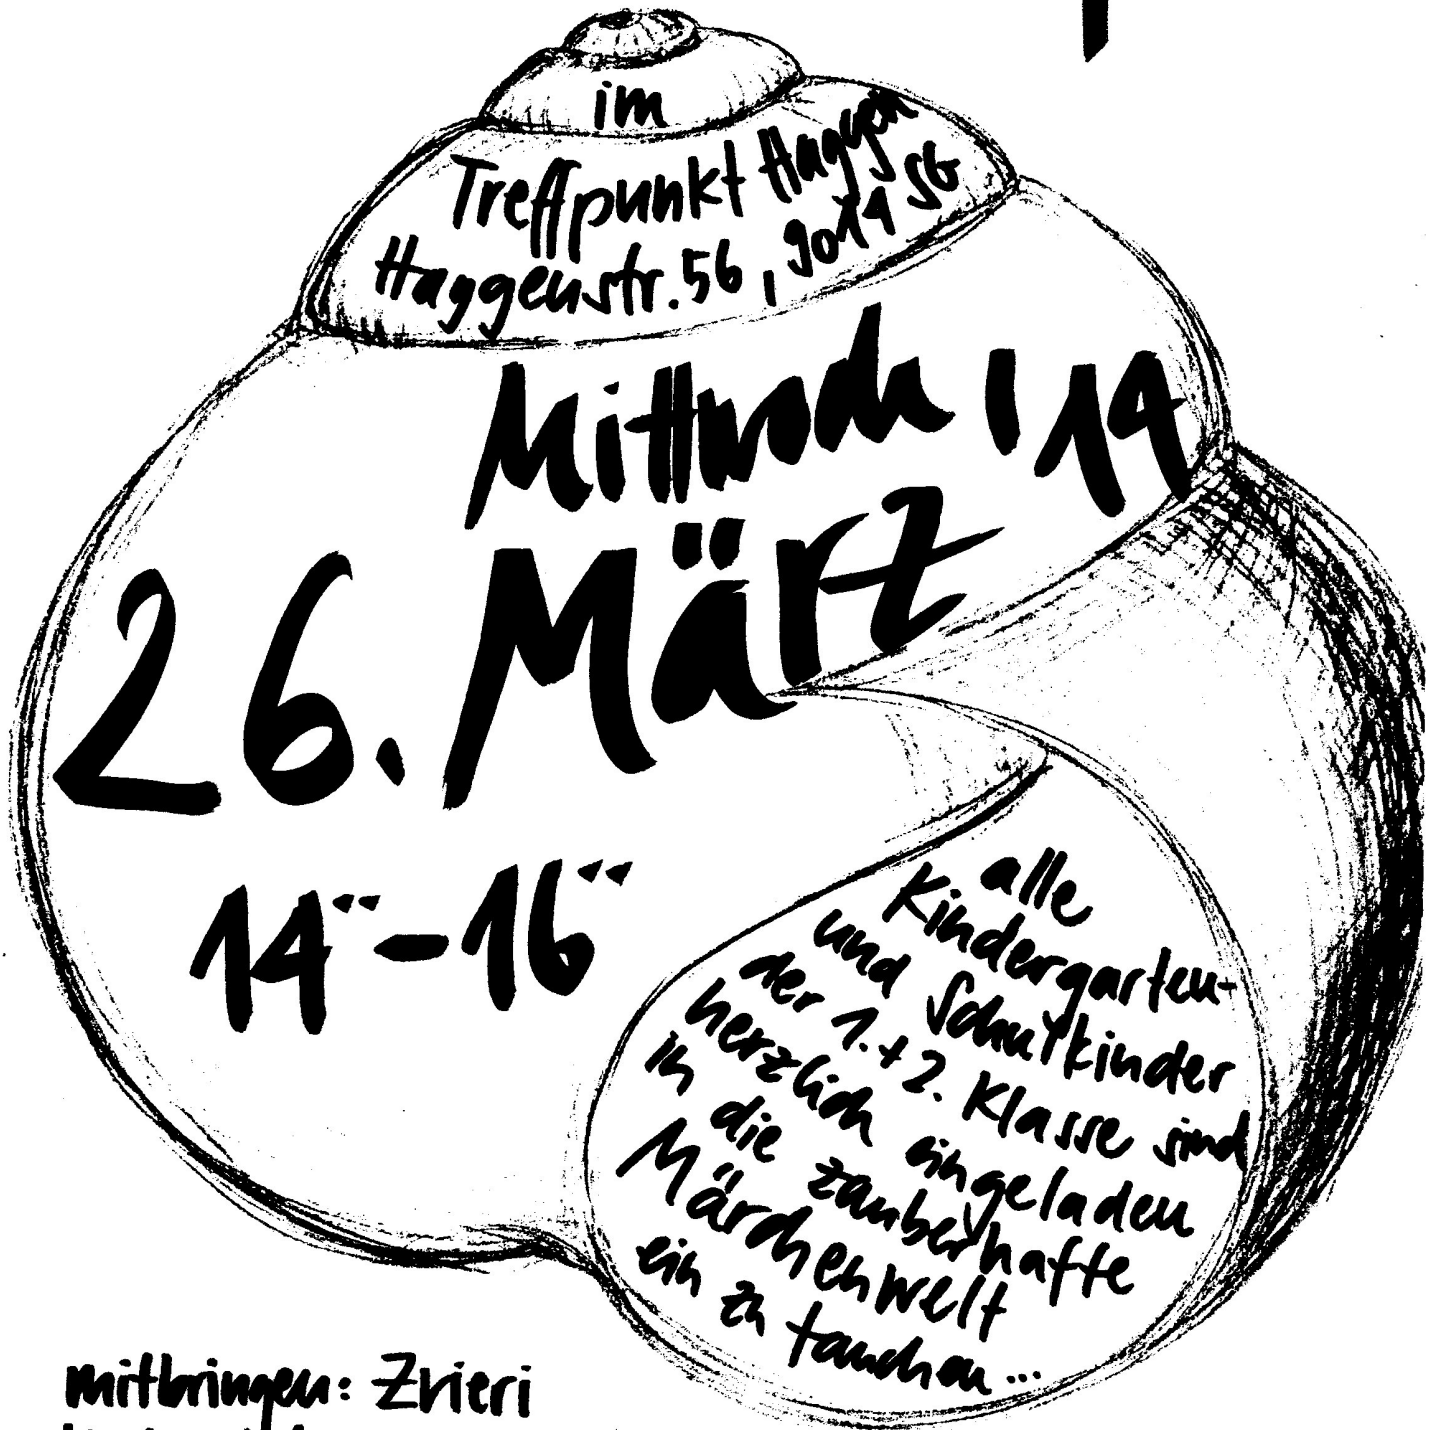 im
Treffpunkt Haggen
Haggenstr. 56, 9014 SG
Mittwoch, 14
26. März
14°° - 16°°
alle
Kindergarten-
und Schulkinder
der 1. + 2. Klasse sind
herzlich eingeladen
in die zauberhafte
Märchenwelt
ein zu tauchen...
mitbringen: Zvieri